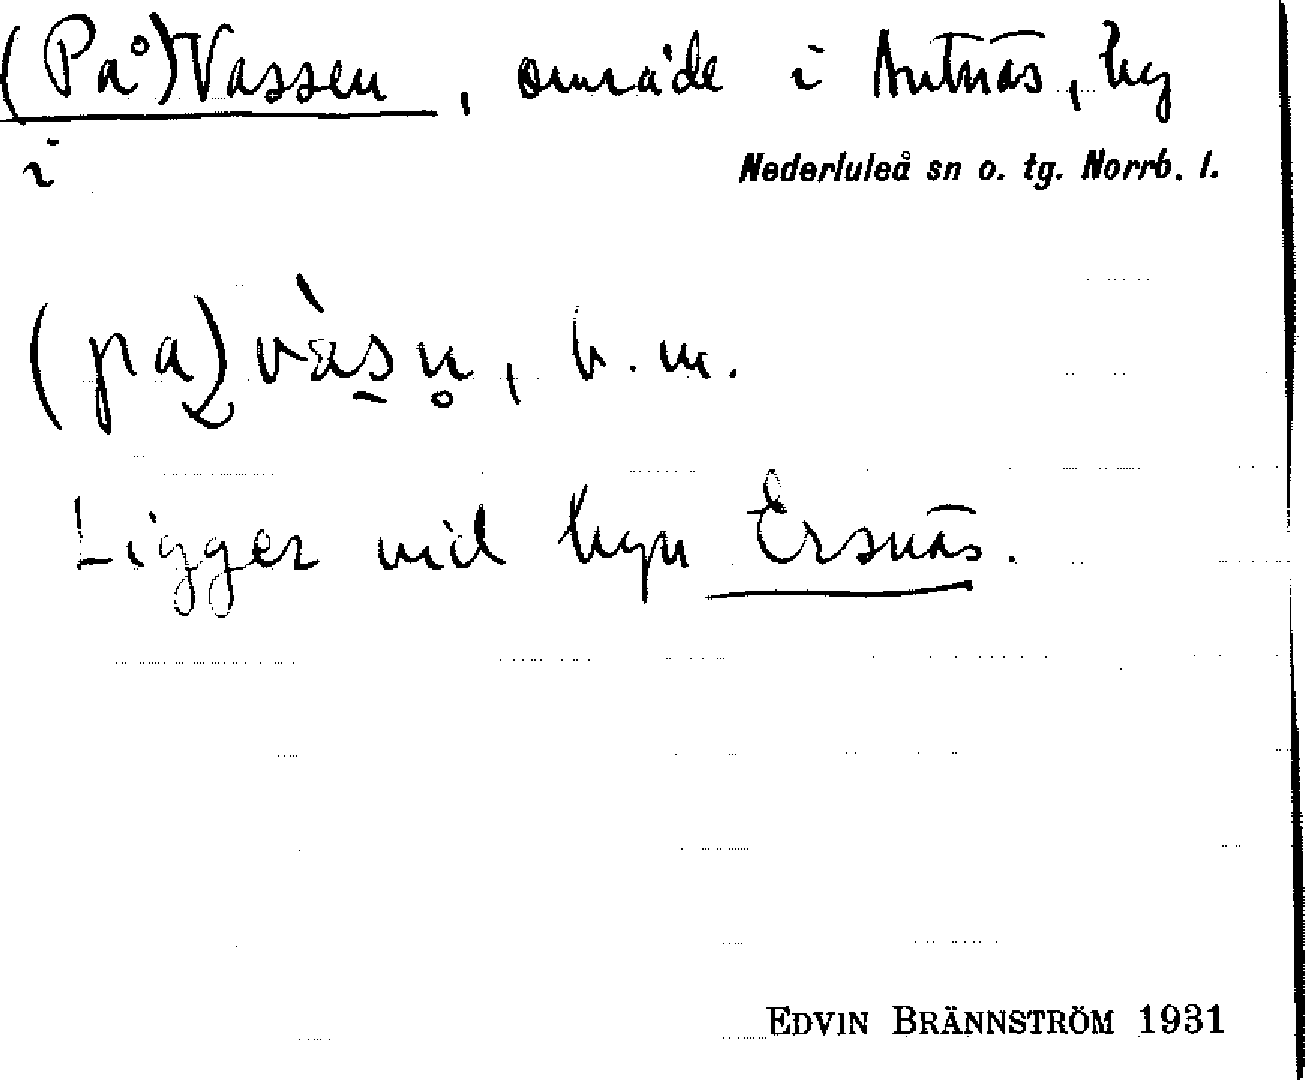 (På) Vassen, område i Antnäs, by
i Nederluleå sn o. tg. Norrb. l.
(pa) vàsn̥, b. m.
Ligger vid byn Ersnäs.
EDVIN BRÄNNSTRÖM 1931